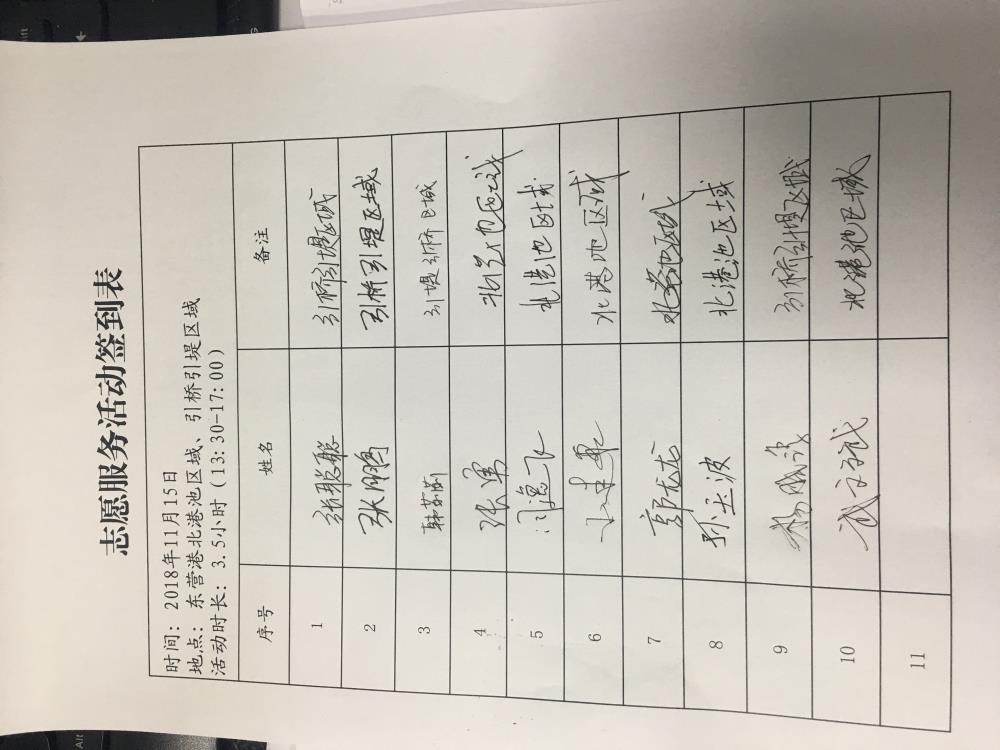 志愿服务活动签到表
时间: 2018年11月15日
地点: 东营港北港池区域、引桥引堤区域
活动时长: 3.5小时 (13:30-17:00)
序号 姓名 备注
1 张聪聪 引桥引堤区域
2 张鹏 引桥引堤区域
3 引堤引桥区域
4 张军 北港池区域
5 闫逸飞 北港池区域
6 北港池区域
7 郭龙龙 北港池区域
8 孙玉波 北港池区域
9 引桥引堤区域
10 北港池区域
11